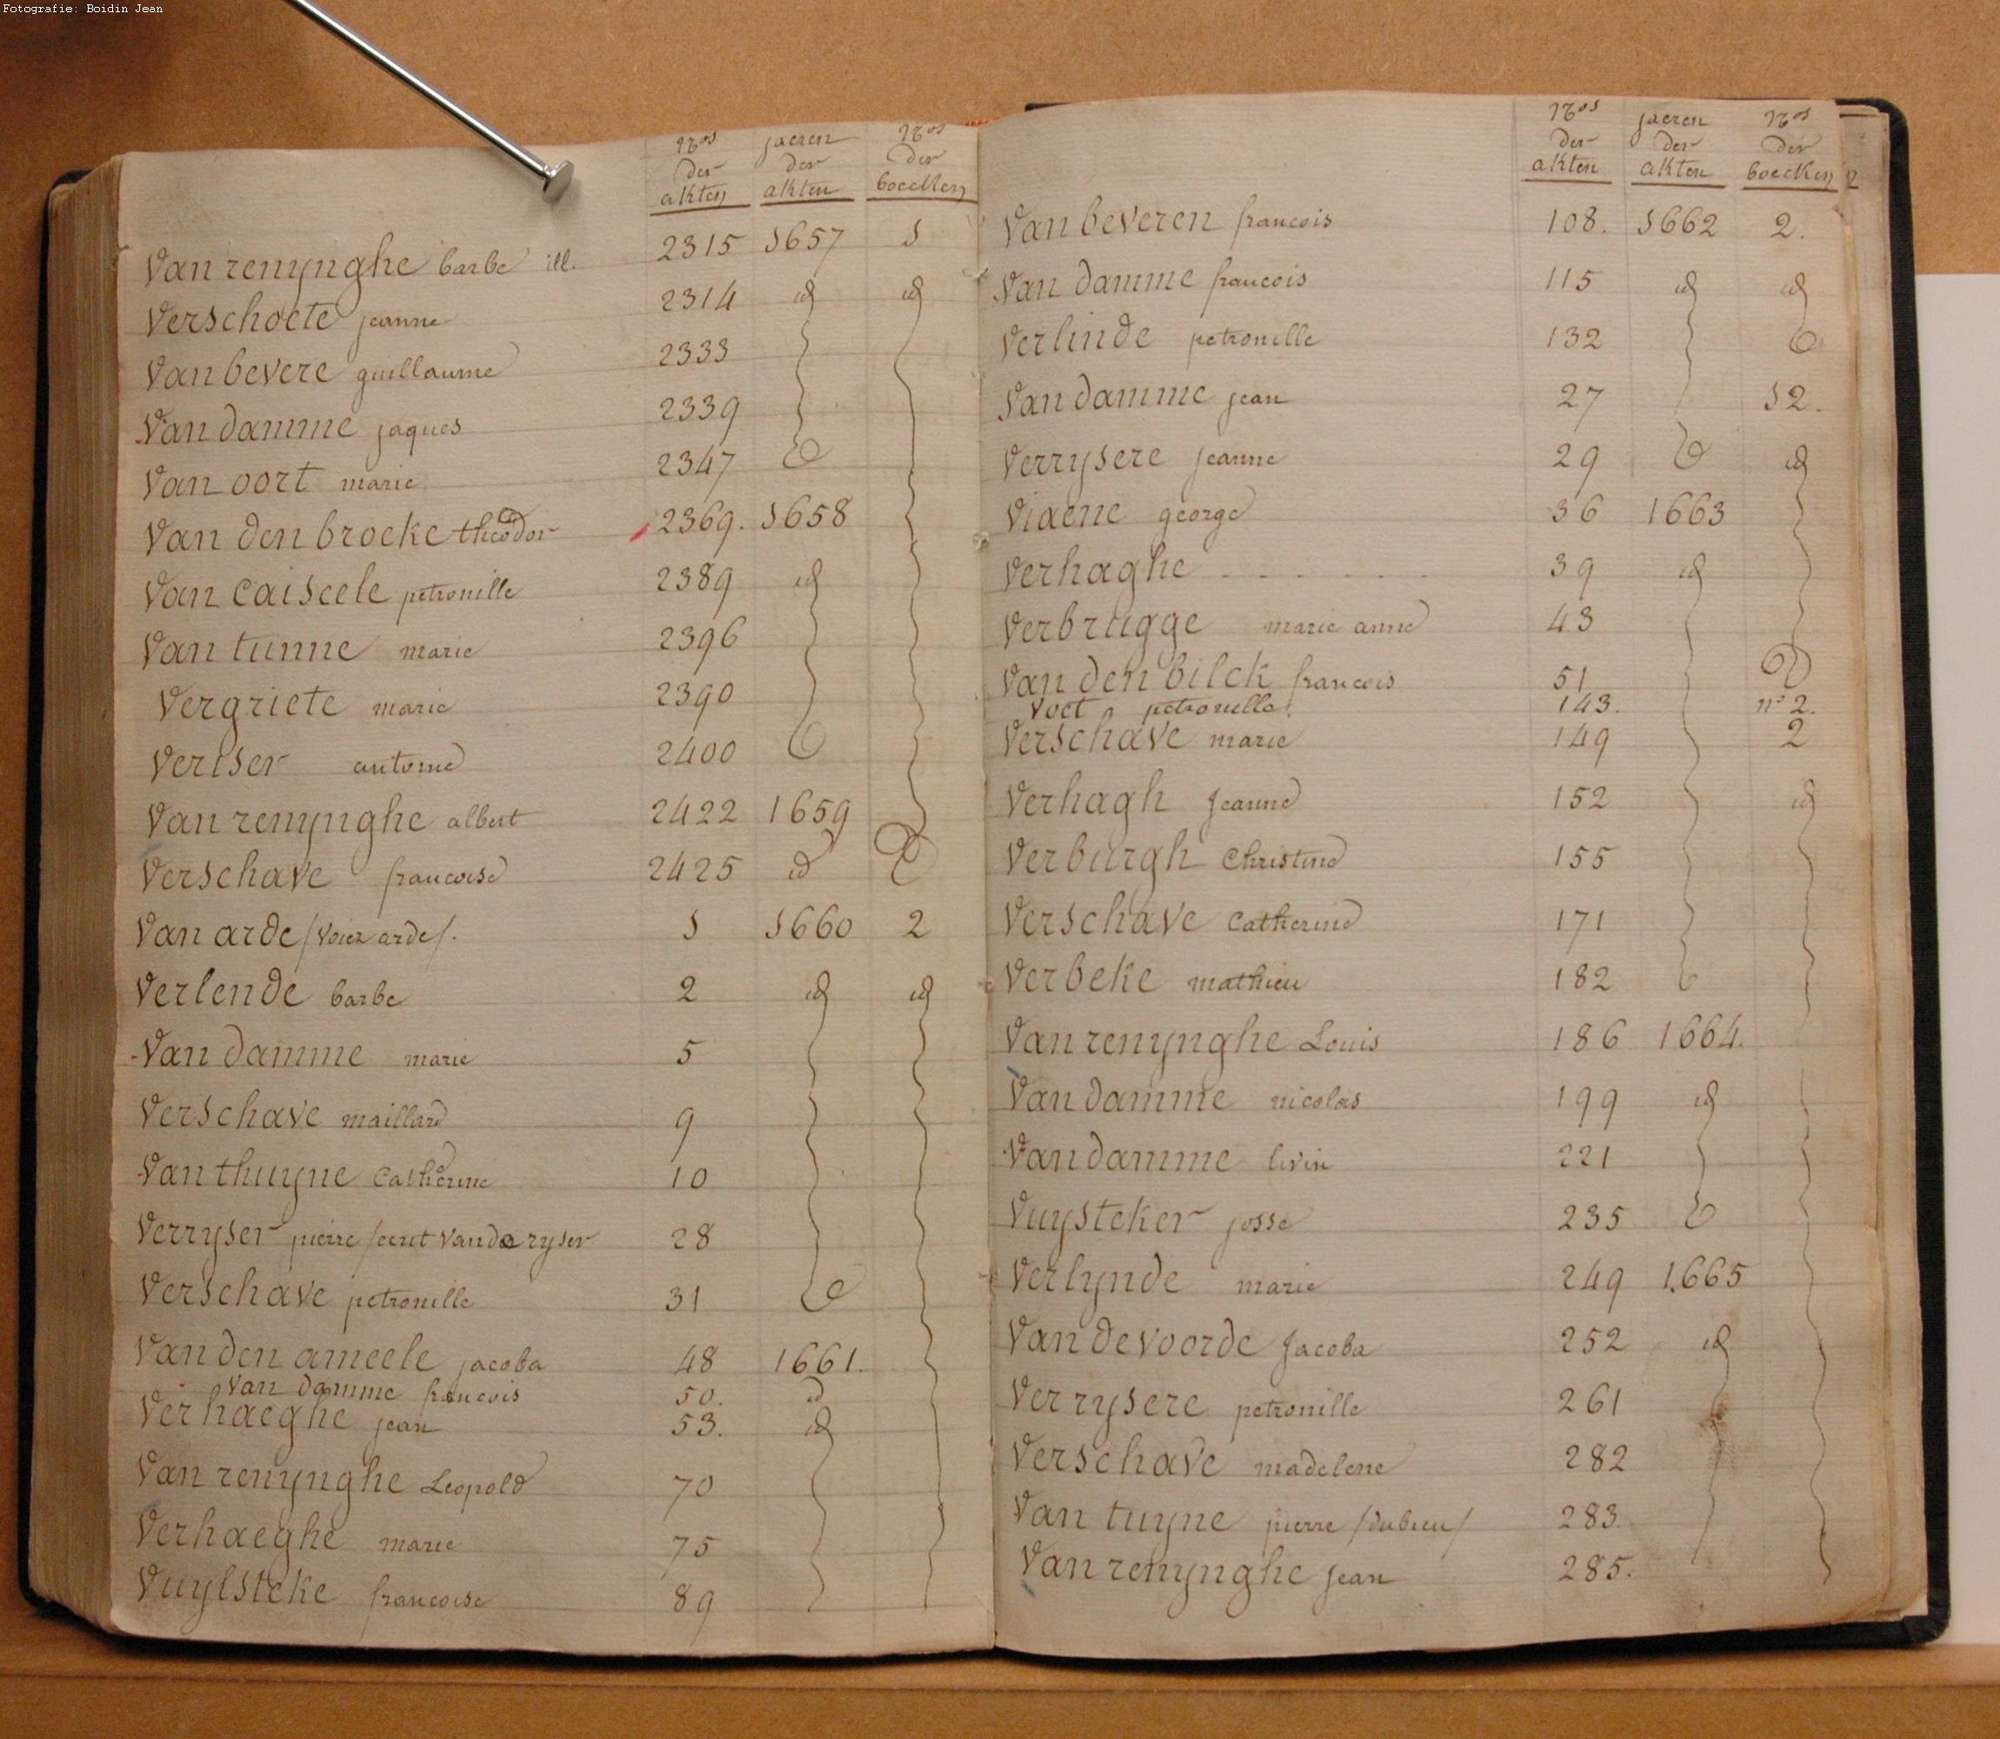 Fotografie: Boidin Jean
nos jaeren nos
der der der
akten akten boecken
Van renynghe barbe ill. 2315 1657 1
Verschoete jeanne 2314 id id
Van bevere guillaume 2333
Van damme jaques 2339
Van oort marie 2347
Van den broeke theodor 2369. 1658
Van Caiscele petronille 2389 id
Van tunne marie 2396
Vergriete marie 2390
Veriser antoine 2400
Van renynghe albert 2422 1659
Verschave francoise 2425 id
Van arde /voiez arde/. 1 1660 2
Verlende barbe 2 id id
Van damme marie 5
Verschave maillard 9
Van thuyne Catherine 10
Verryser pierre /ecrit Vande ryser 28
Verschave petronille 31
Van den ameele jacoba 48 1661.
Van damme francois 50. id
Verhaeghe jean 53. id
Van renynghe Leopold 70
Verhaeghe marie 75
Vuylsteke francoise 89
nos jaeren nos
der der der
akten akten boecken
Van beveren francois 108. 1662 2.
Van damme francois 115 id id
Verlinde petronille 132
Van damme jean 27 12.
Verrysere jeanne 29 id
Viaene george 36 1663
Verhaghe - - - - - - - 39 id
Verbrugge marie anne 43
Van den bilck francois 51
Voet petronille. 143. no 2.
Verschave marie 149 2
Verhagh Jeanne 152 id
Verburgh Christine 155
Verschave Catherine 171
Verbeke mathieu 182
Van renynghe Louis 186 1664.
Van damme nicolas 199 id
Van damme livin 221
Vuysteker josse 235
Verlynde marie 249 1665
Van de voorde Jacoba 252 id
Verrysere petronille 261
Verschave madelene 282
Van tuyne pierre /dubieu/ 283
Van renynghe jean 285.